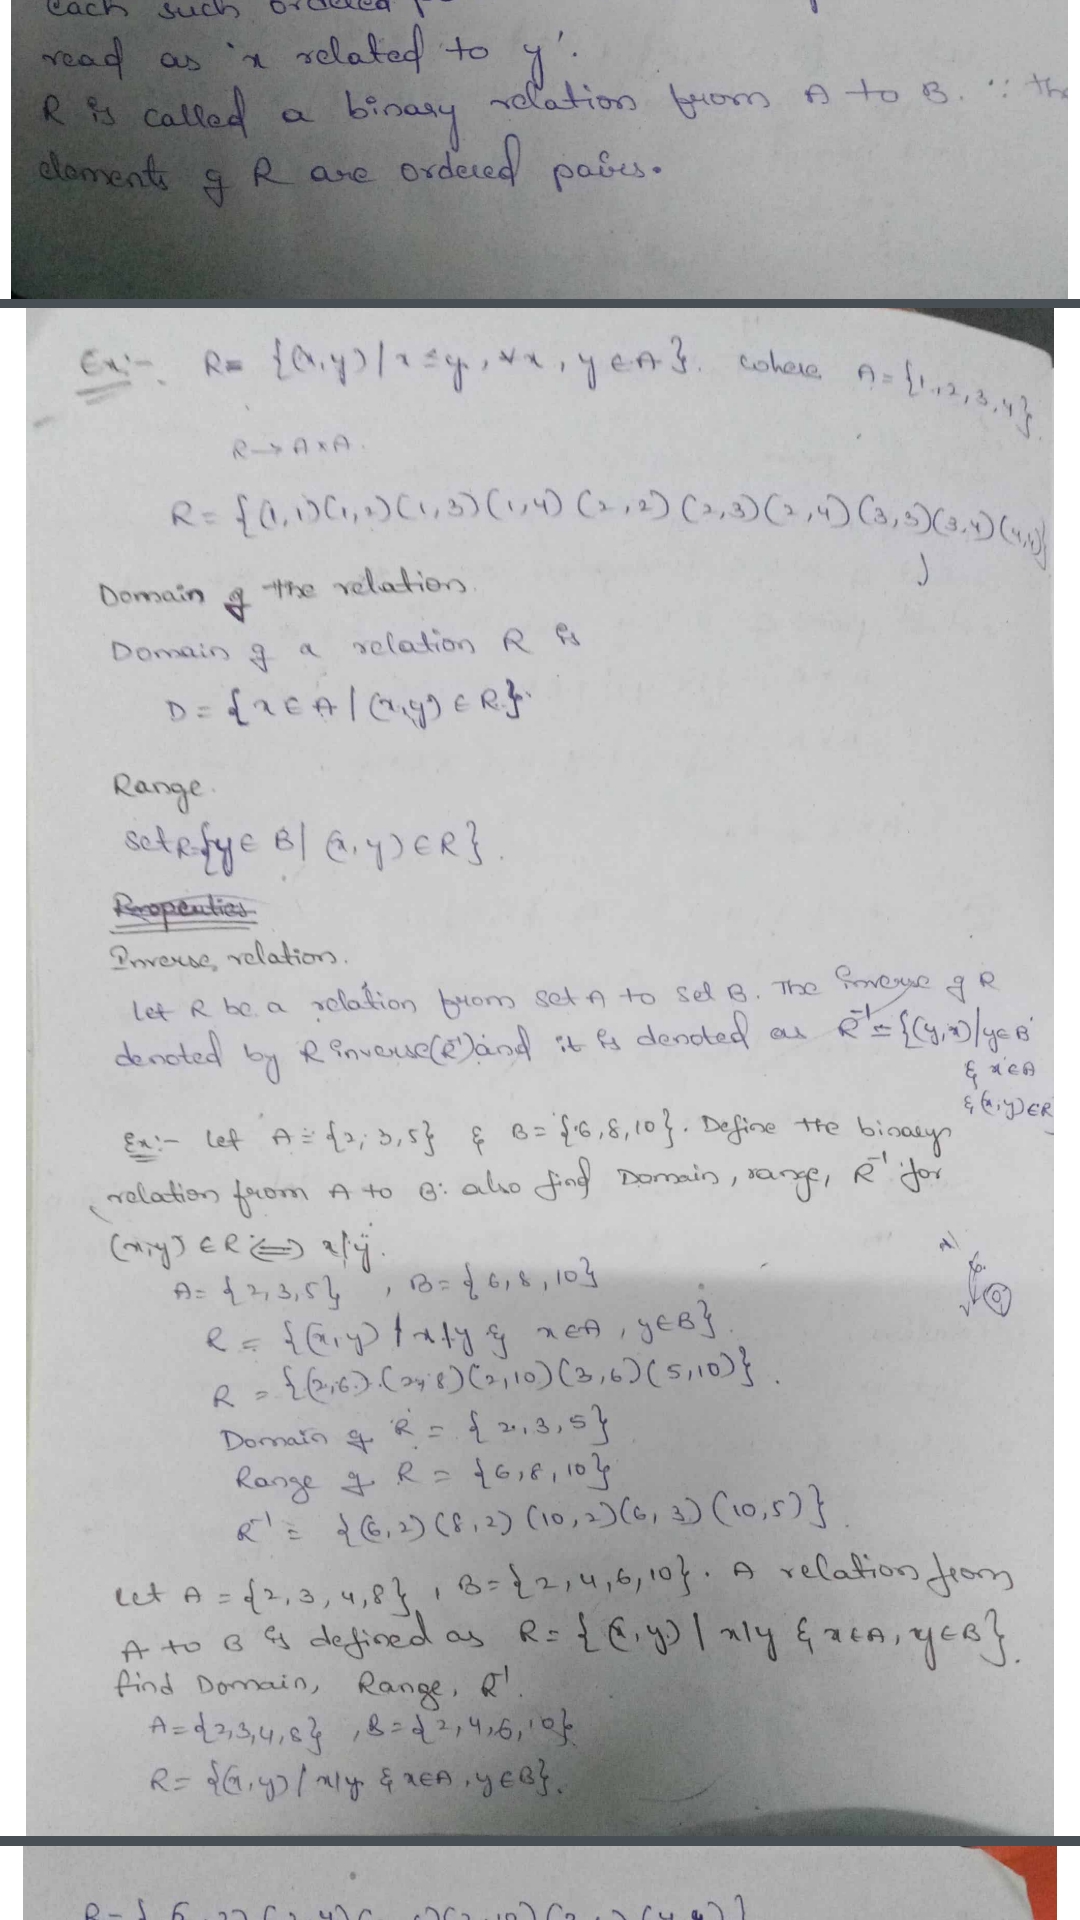 each such ordered
read as 'x related to y'.
R is called a binary relation from A to B. ∵ the
elements of R are ordered pairs.
Ex:- R= {(x,y) / x ≤ y, ∀x, y ∈ A}. where A = {1,2,3,4}.
R → A × A.
R = {(1,1)(1,2)(1,3)(1,4)(2,2)(2,3)(2,4)(3,3)(3,4)(4,4)}
Domain of the relation.
Domain of a relation R is
D = {x ∈ A | (x,y) ∈ R}.
Range.
set R={y ∈ B | (x,y) ∈ R}.
Properties
Inverse relation.
Let R be a relation from set A to set B. The inverse of R
denoted by R inverse(R⁻¹) and it is denoted as R⁻¹ = {(y,x)/y∈B
& x∈A
& (x,y)∈R
Ex:- Let A = {2,3,5} & B = {6,8,10}. Define the binary
relation from A to B: also find Domain, range, R⁻¹ for
(x,y) ∈ R ⟺ x/y.
A= {2,3,5} , B = {6,8,10}
R = {(x,y) / x/y & x∈A, y∈B}.
R = {(2,6)(2,8)(2,10)(3,6)(5,10)}.
Domain of R = {2,3,5}
Range of R = {6,8,10}
R⁻¹ = {(6,2)(8,2)(10,2)(6,3)(10,5)}.
Let A = {2,3,4,8}, B = {2,4,6,10}. A relation from
A to B is defined as R = {(x,y) | x|y & x∈A, y∈B}.
find Domain, Range, R⁻¹.
A = {2,3,4,8} , B = {2,4,6,10}
R = {(x,y) / x|y & x∈A, y∈B}.